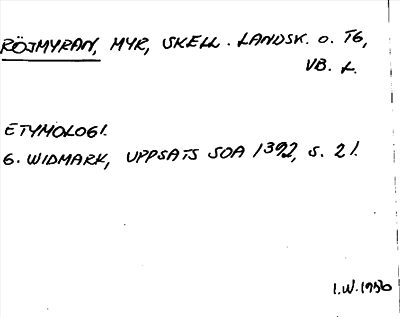 RÖJMYRAN, MYR, SKELL. LANDSK. O. TG,
VB. L.
ETYMOLOGI.
G. WIDMARK, UPPSATS SOA 1392, S. 21.
I.W. 1986